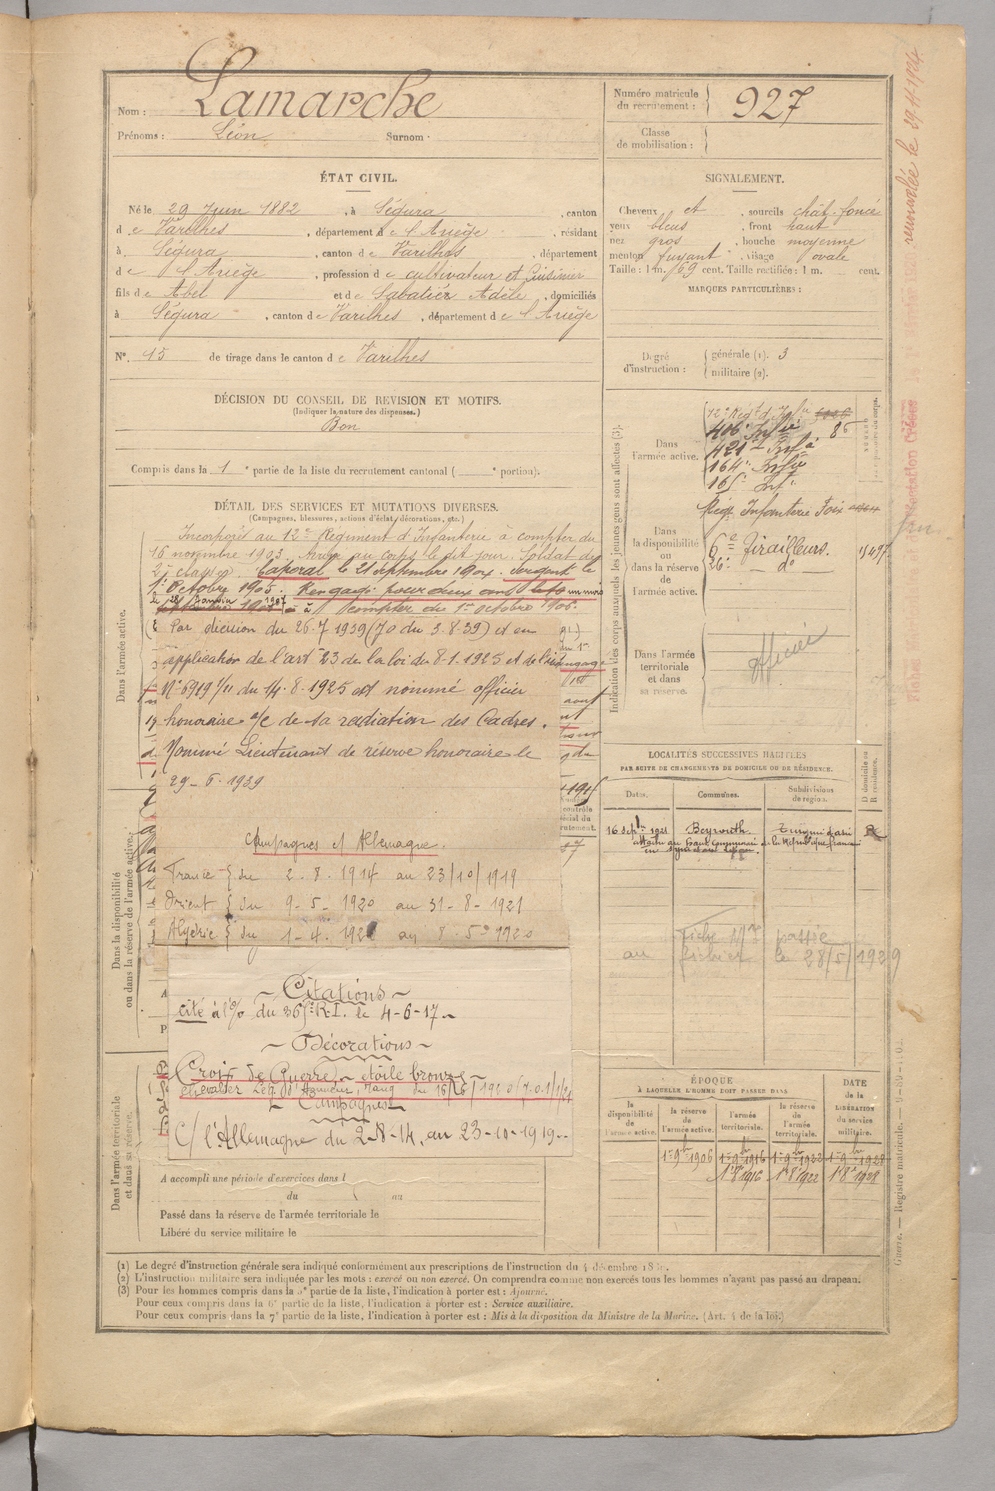 Nom : Lamarche
Prénoms : Léon Surnom
Numéro matricule
du recrutement : 927
Classe
de mobilisation :
ÉTAT CIVIL.
Né le 29 Juin 1882, à Ségura, canton
de Varilhes, département de l'Ariège, résidant
à Ségura, canton de Varilhes, département
de l'Ariège, profession de cultivateur et cuisinier
fils de Abel et de Sabatier Adèle, domiciliés
à Ségura, canton de Varilhes, département de l'Ariège
N°. 15 de tirage dans le canton de Varilhes
SIGNALEMENT.
Cheveux et sourcils chât. foncé
yeux bleus, front haut
nez gros, bouche moyenne
menton fuyant, visage ovale
Taille : 1 m. 69 cent. Taille rectifiée : 1 m. cent.
MARQUES PARTICULIÈRES :
Degré
d'instruction :
générale (1). 3
militaire (2).
DÉCISION DU CONSEIL DE REVISION ET MOTIFS.
(Indiquer la nature des dispenses.)
Bon
Compris dans la 1e partie de la liste du recrutement cantonal ( e portion).
DÉTAIL DES SERVICES ET MUTATIONS DIVERSES.
(Campagnes, blessures, actions d'éclat, décorations, etc.)
Incorporé au 12e Régiment d'Infanterie à compter du
16 novembre 1903. Arrivé au corps le dit jour. Soldat de
2e classe. Caporal le 21 septembre 1904. Sergent le
1er Octobre 1905. Rengagé pour deux ans
à compter du 1er octobre 1906.
Par décision du 26.7.1939 (JO du 3.8.39) et en
application de l'art 23 de la loi du 8.1.1925 et de l'
N° 6919 1/11 du 14.8.1925 est nommé officier
honoraire a/c de sa radiation des Cadres.
Nommé Lieutenant de réserve honoraire le
29-6-1939
Campagnes et Allemagne.
France { du 2.8.1914 au 23/10/1919
Orient { du 9-5-1920 au 31-8-1921
Algérie { du 1-4-192 au 8.5 1920
~ Citations ~
cité à l'o/ du 36 R.I. le 4-6-17
~ Décorations ~
Croix de Guerre ~ étoile bronze ~
Chevalier Lég. d'Honneur, rang du 16/
~ Campagnes ~
C/ l'Allemagne du 2-8-14, au 23-10-1919
A accompli une période d'exercices dans l
du au
Passé dans la réserve de l'armée territoriale le
Libéré du service militaire le
Dans l'armée active.
Dans la disponibilité
ou dans la réserve de l'armée active.
Dans l'armée territoriale
et dans sa réserve.
Indication des corps auxquels les jeunes gens sont affectés (3).
Dans
l'armée active.
12e Régt d'Infie 86
406e Infie
421e Infie
164e Infie
165e Infie
Dans
la disponibilité
ou
dans la réserve
de
l'armée active.
Régt Infanterie Foix
6e Tirailleurs.
26e do
Dans l'armée
territoriale
et dans
sa réserve.
Officier
LOCALITÉS SUCCESSIVES HABITÉES
PAR SUITE DE CHANGEMENTS DE DOMICILE OU DE RÉSIDENCE.
Dates. Communes. Subdivisions
de région. D domicile ou
R résidence.
16 sept 1921 Beyrouth Turquie d'asie R
attaché au haut commissariat de la République française
en Syrie et au Liban
Fiche passée
au fichier le 28/5/1929
ÉPOQUE
À LAQUELLE L'HOMME DOIT PASSER DANS
DATE
de la
LIBÉRATION
du service
militaire.
la
disponibilité
de
l'armée active.
la réserve
de
l'armée active.
l'armée
territoriale.
la réserve
de
l'armée
territoriale.
1er 9bre 1906 1er 9bre 1916 1er 9bre 1922 1er 9bre 1928
1er 8 1916 1er 8 1922 1er 8 1928
(1) Le degré d'instruction générale sera indiqué conformément aux prescriptions de l'instruction du 4 décembre 18
(2) L'instruction militaire sera indiquée par les mots : exercé ou non exercé. On comprendra comme non exercés tous les hommes n'ayant pas passé au drapeau.
(3) Pour les hommes compris dans la 5e partie de la liste, l'indication à porter est : Ajourné.
Pour ceux compris dans la 6e partie de la liste, l'indication à porter est : Service auxiliaire.
Pour ceux compris dans la 7e partie de la liste, l'indication à porter est : Mis à la disposition du Ministre de la Marine. (Art. 4 de la loi.)
Guerre. — Registre matricule.